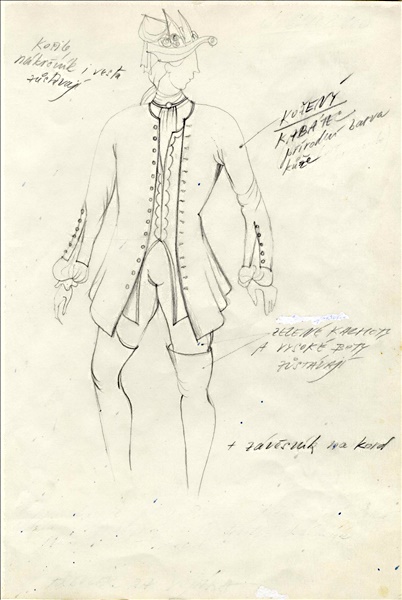 Košile
nákrčník i vesta
zůstávají
KOŽENÝ
KABÁTEC
přírodní barva
kůže
ZELENÉ KALHOTY
A VYSOKÉ BOTY
ZŮSTÁVAJÍ
+ závěsník na kord